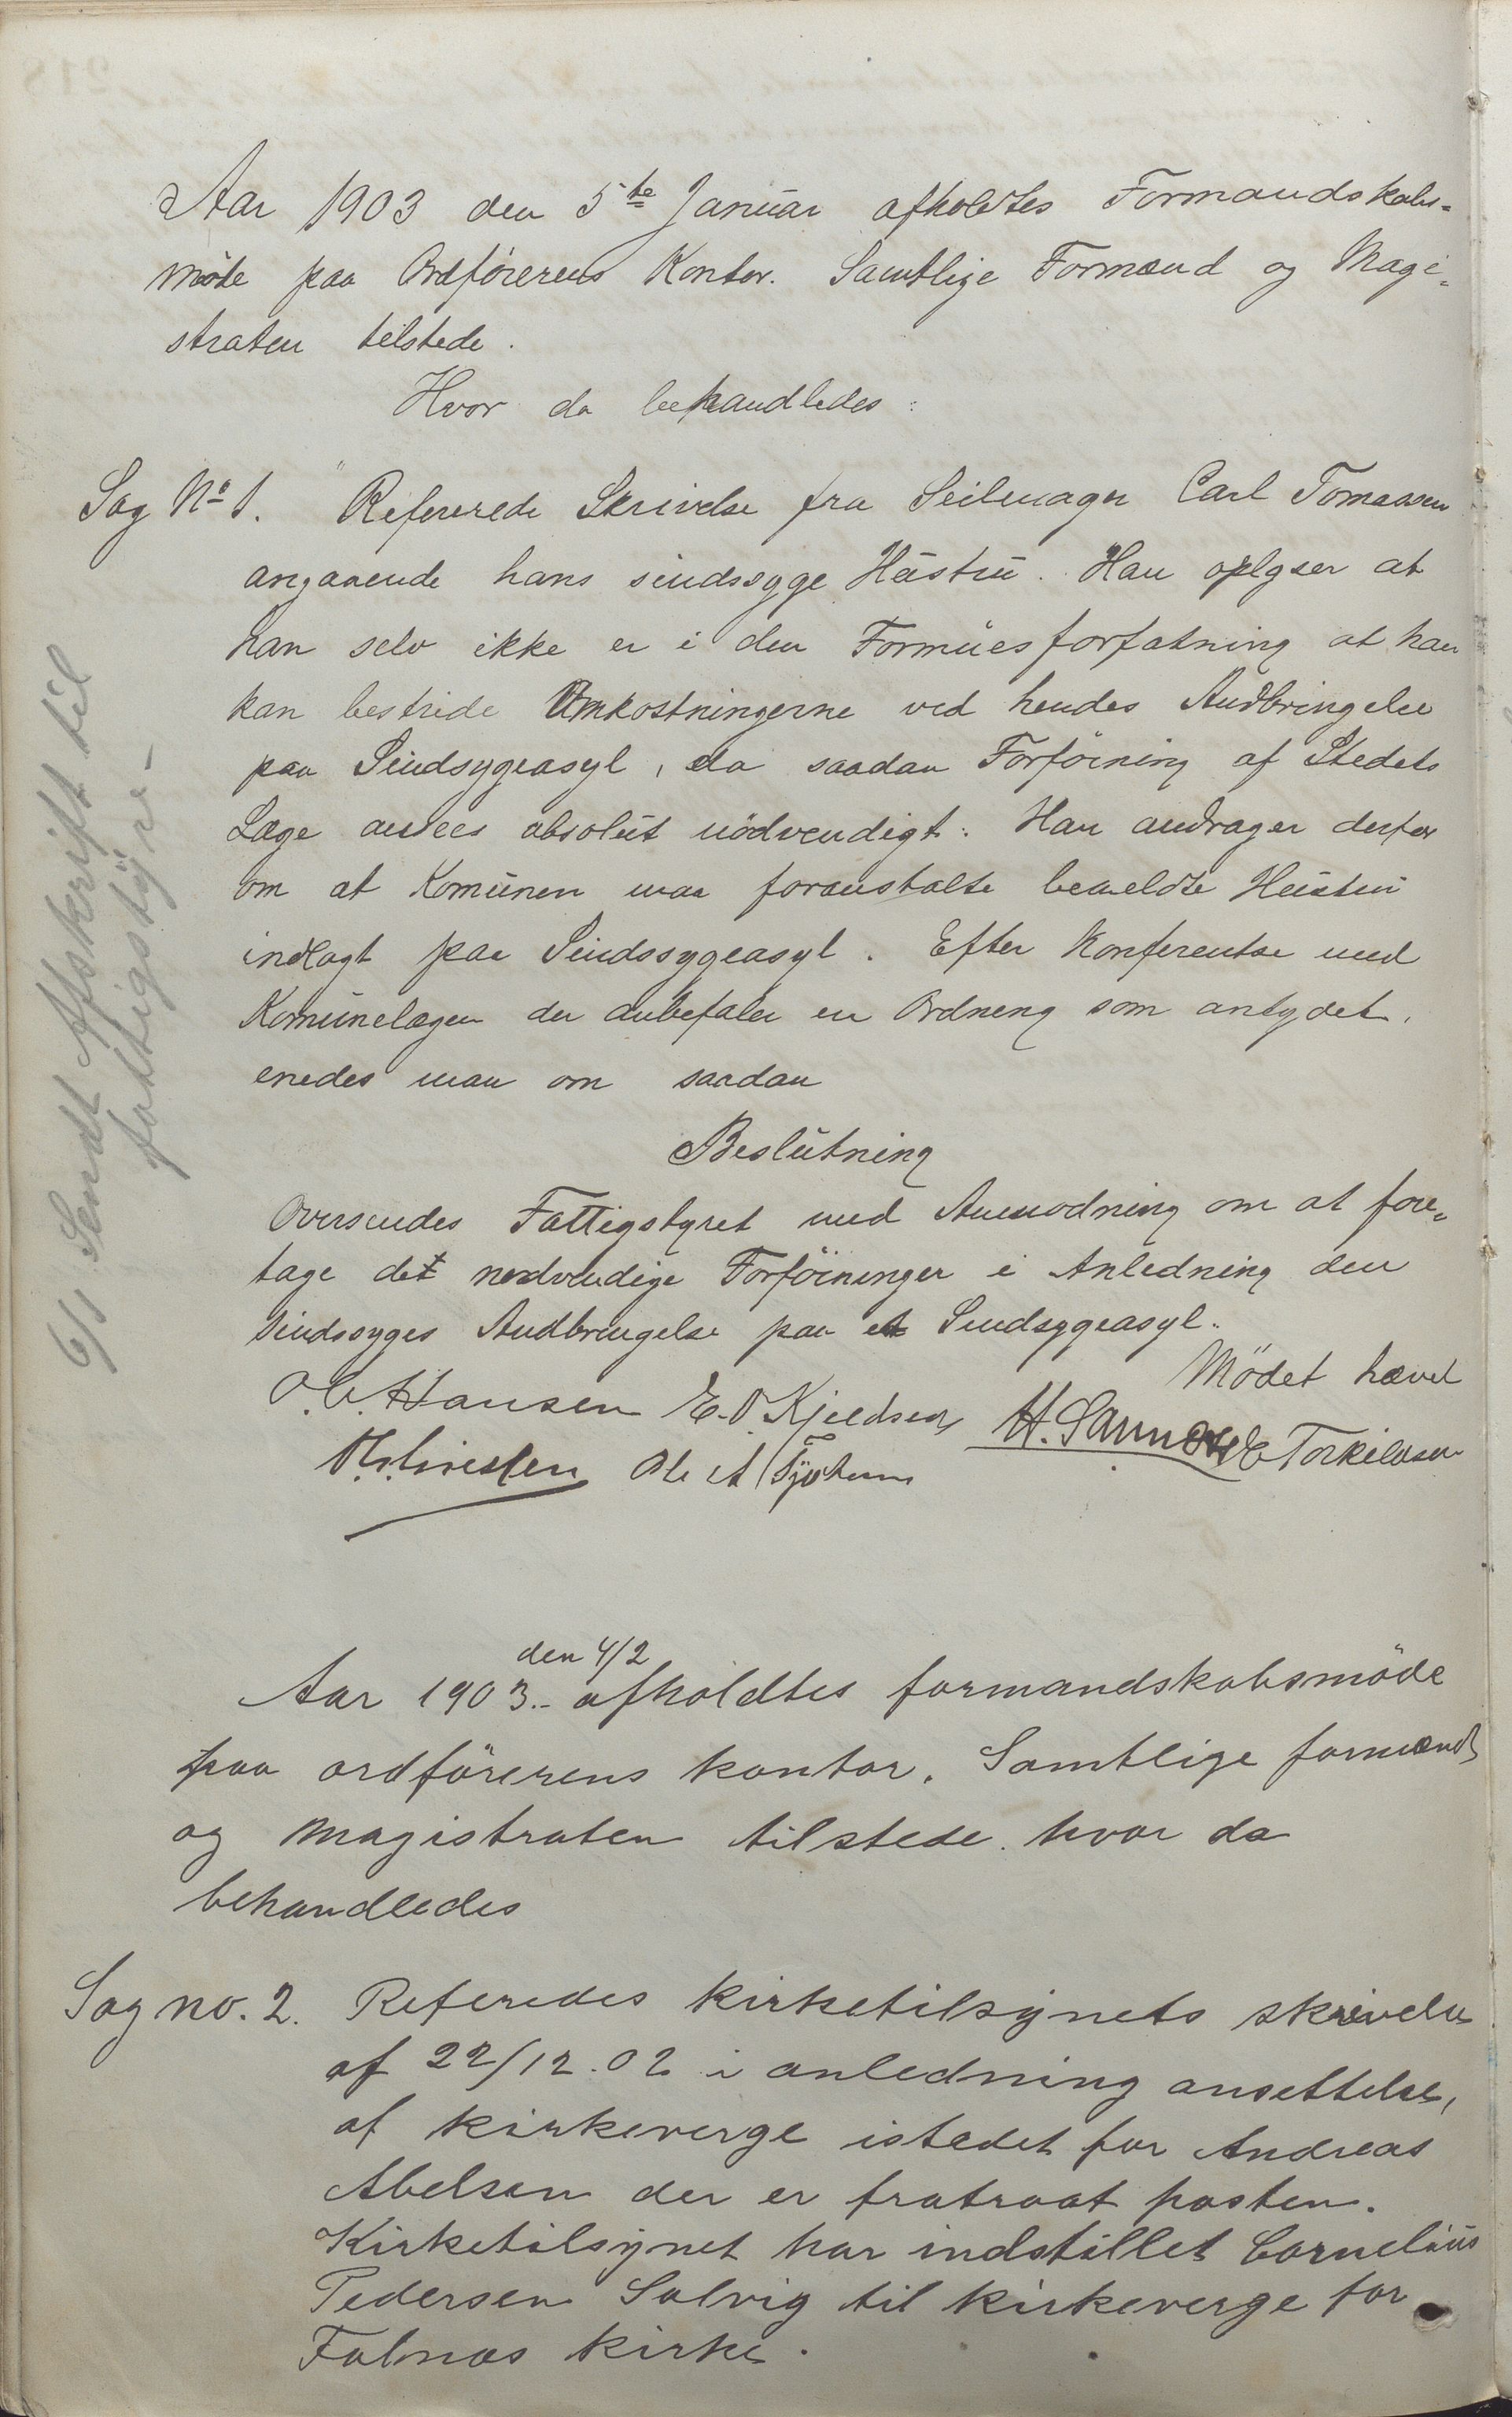 Aar 1903 den 5te Januar afholdtes Formandskabs-
møde paa Ordførerens Kontor. Samtlige Formænd og Magi-
straten tilstede.
Hvor da behandledes:
Sag No 1. Refererede Skrivelse fra Seilmager Carl Tomassen
angaaende hans sindssyge Hustru. Han oplyser at
han selv ikke er i den Formuesforfatning at han
kan bestride Omkostningerne ved hendes Andbringelse
paa Sindsygeasyl, da saadan Forføining af Stedets
Læge ansees absolut nødvendigt. Han andrager derfor
om at Komunen maa foranstalte bemeldte Hustru
indlagt paa Sindssygeasyl. Efter Konferentse med
Komunelægen der anbefaler en Ordning som antydet,
enedes man om saadan
Beslutning
Oversendes Fattigstyret med Anmodning om at fore-
tage det nødvendige Forføininger i Anledning den
sindssyges Andbringelse paa et Sindsygeasyl.
Mödet hævet
O. C. Hansen E. O. Kjeldsen H. Sannes E Torkildsen
Ole A
6/1 Sendt Afskrift til
fattigstyre -
Aar 1903.- den 4/2 afholdtes formandskabsmöde
paa ordförerens kontor. Samtlige formænd
og Magistraten tilstede. hvor da
behandledes
Sag no. 2. Referedes kirketilsynets skrivelse
af 22/12.02 i anledning ansettelse,
af kirkeverge istedet for Andreas
Abelsen der er fratraat posten.
Kirketilsynet har indstillet Cornelius
Pedersen Salvig til kirkeverge for
Falnæs kirke.